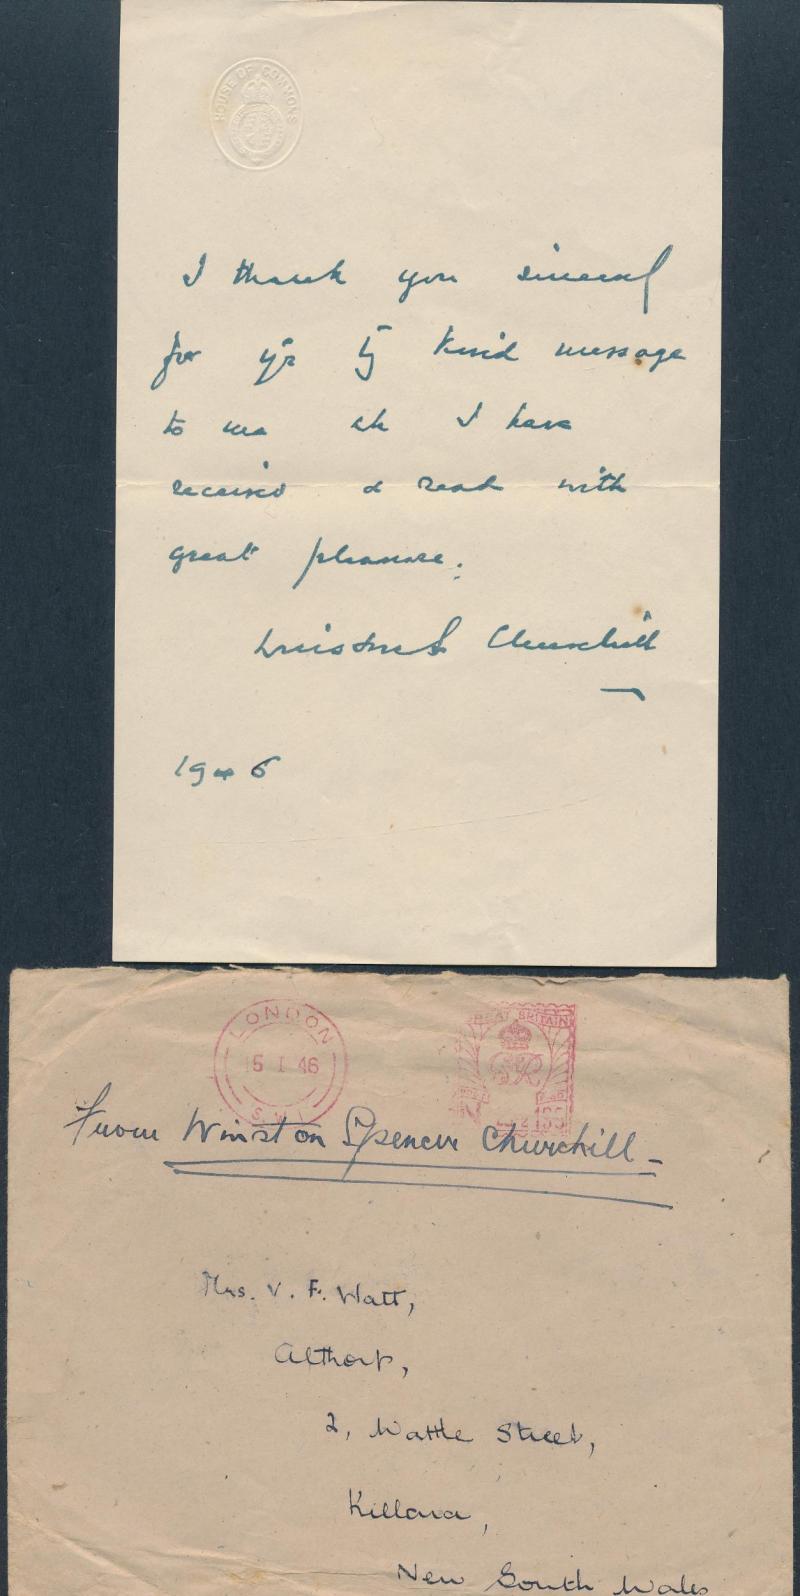 HOUSE OF COMMONS
I thank you sincerely
for yr vy kind message
to me wh I have
received & read with
great pleasure.
Winston S. Churchill
1946
LONDON
15 I 46
S.W.1
GREAT BRITAIN
GR
From Winston Spencer Churchill –
Mrs. V. F. Watt,
Althorp,
2, Wattle Street,
Killara,
New South Wales